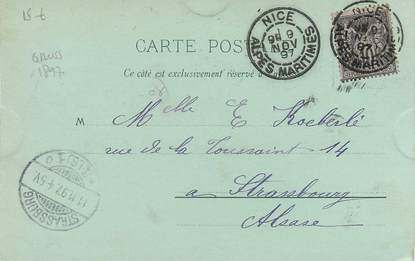 15-6
GRUSS
1897
CARTE POS
Ce côté est exclusivement réservé à
NICE
9
NOV
97
ALPES MARITIMES
NICE
97
ALPES MARITIMES
M elle E Koeberlé
rue de la Toussaint 14
a Strasbourg
Alsase
STRASSBURG
11.11.97.4-5V.